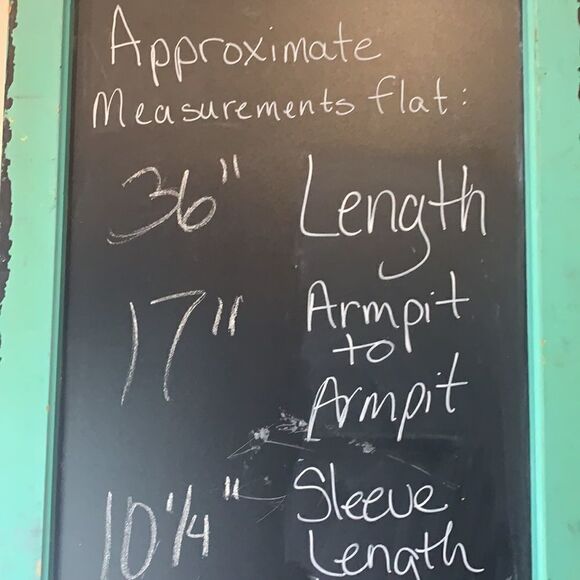 Approximate
Measurements flat:
36" Length
17" Armpit
to
Armpit
10 1/4" Sleeve
Length